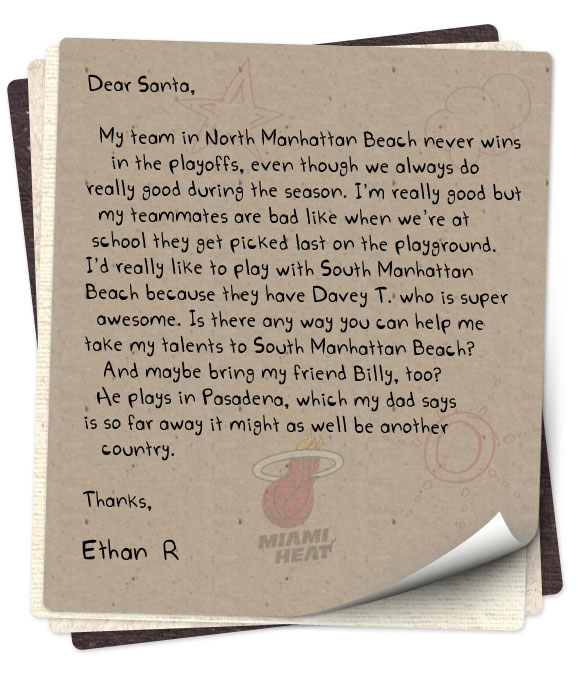 Dear Santa,
My team in North Manhattan Beach never wins
in the playoffs, even though we always do
really good during the season. I'm really good but
my teammates are bad like when we're at
school they get picked last on the playground.
I'd really like to play with South Manhattan
Beach because they have Davey T. who is super
awesome. Is there any way you can help me
take my talents to South Manhattan Beach?
And maybe bring my friend Billy, too?
He plays in Pasadena, which my dad says
is so far away it might as well be another
country.
Thanks,
Ethan R
MIAMI
HEAT